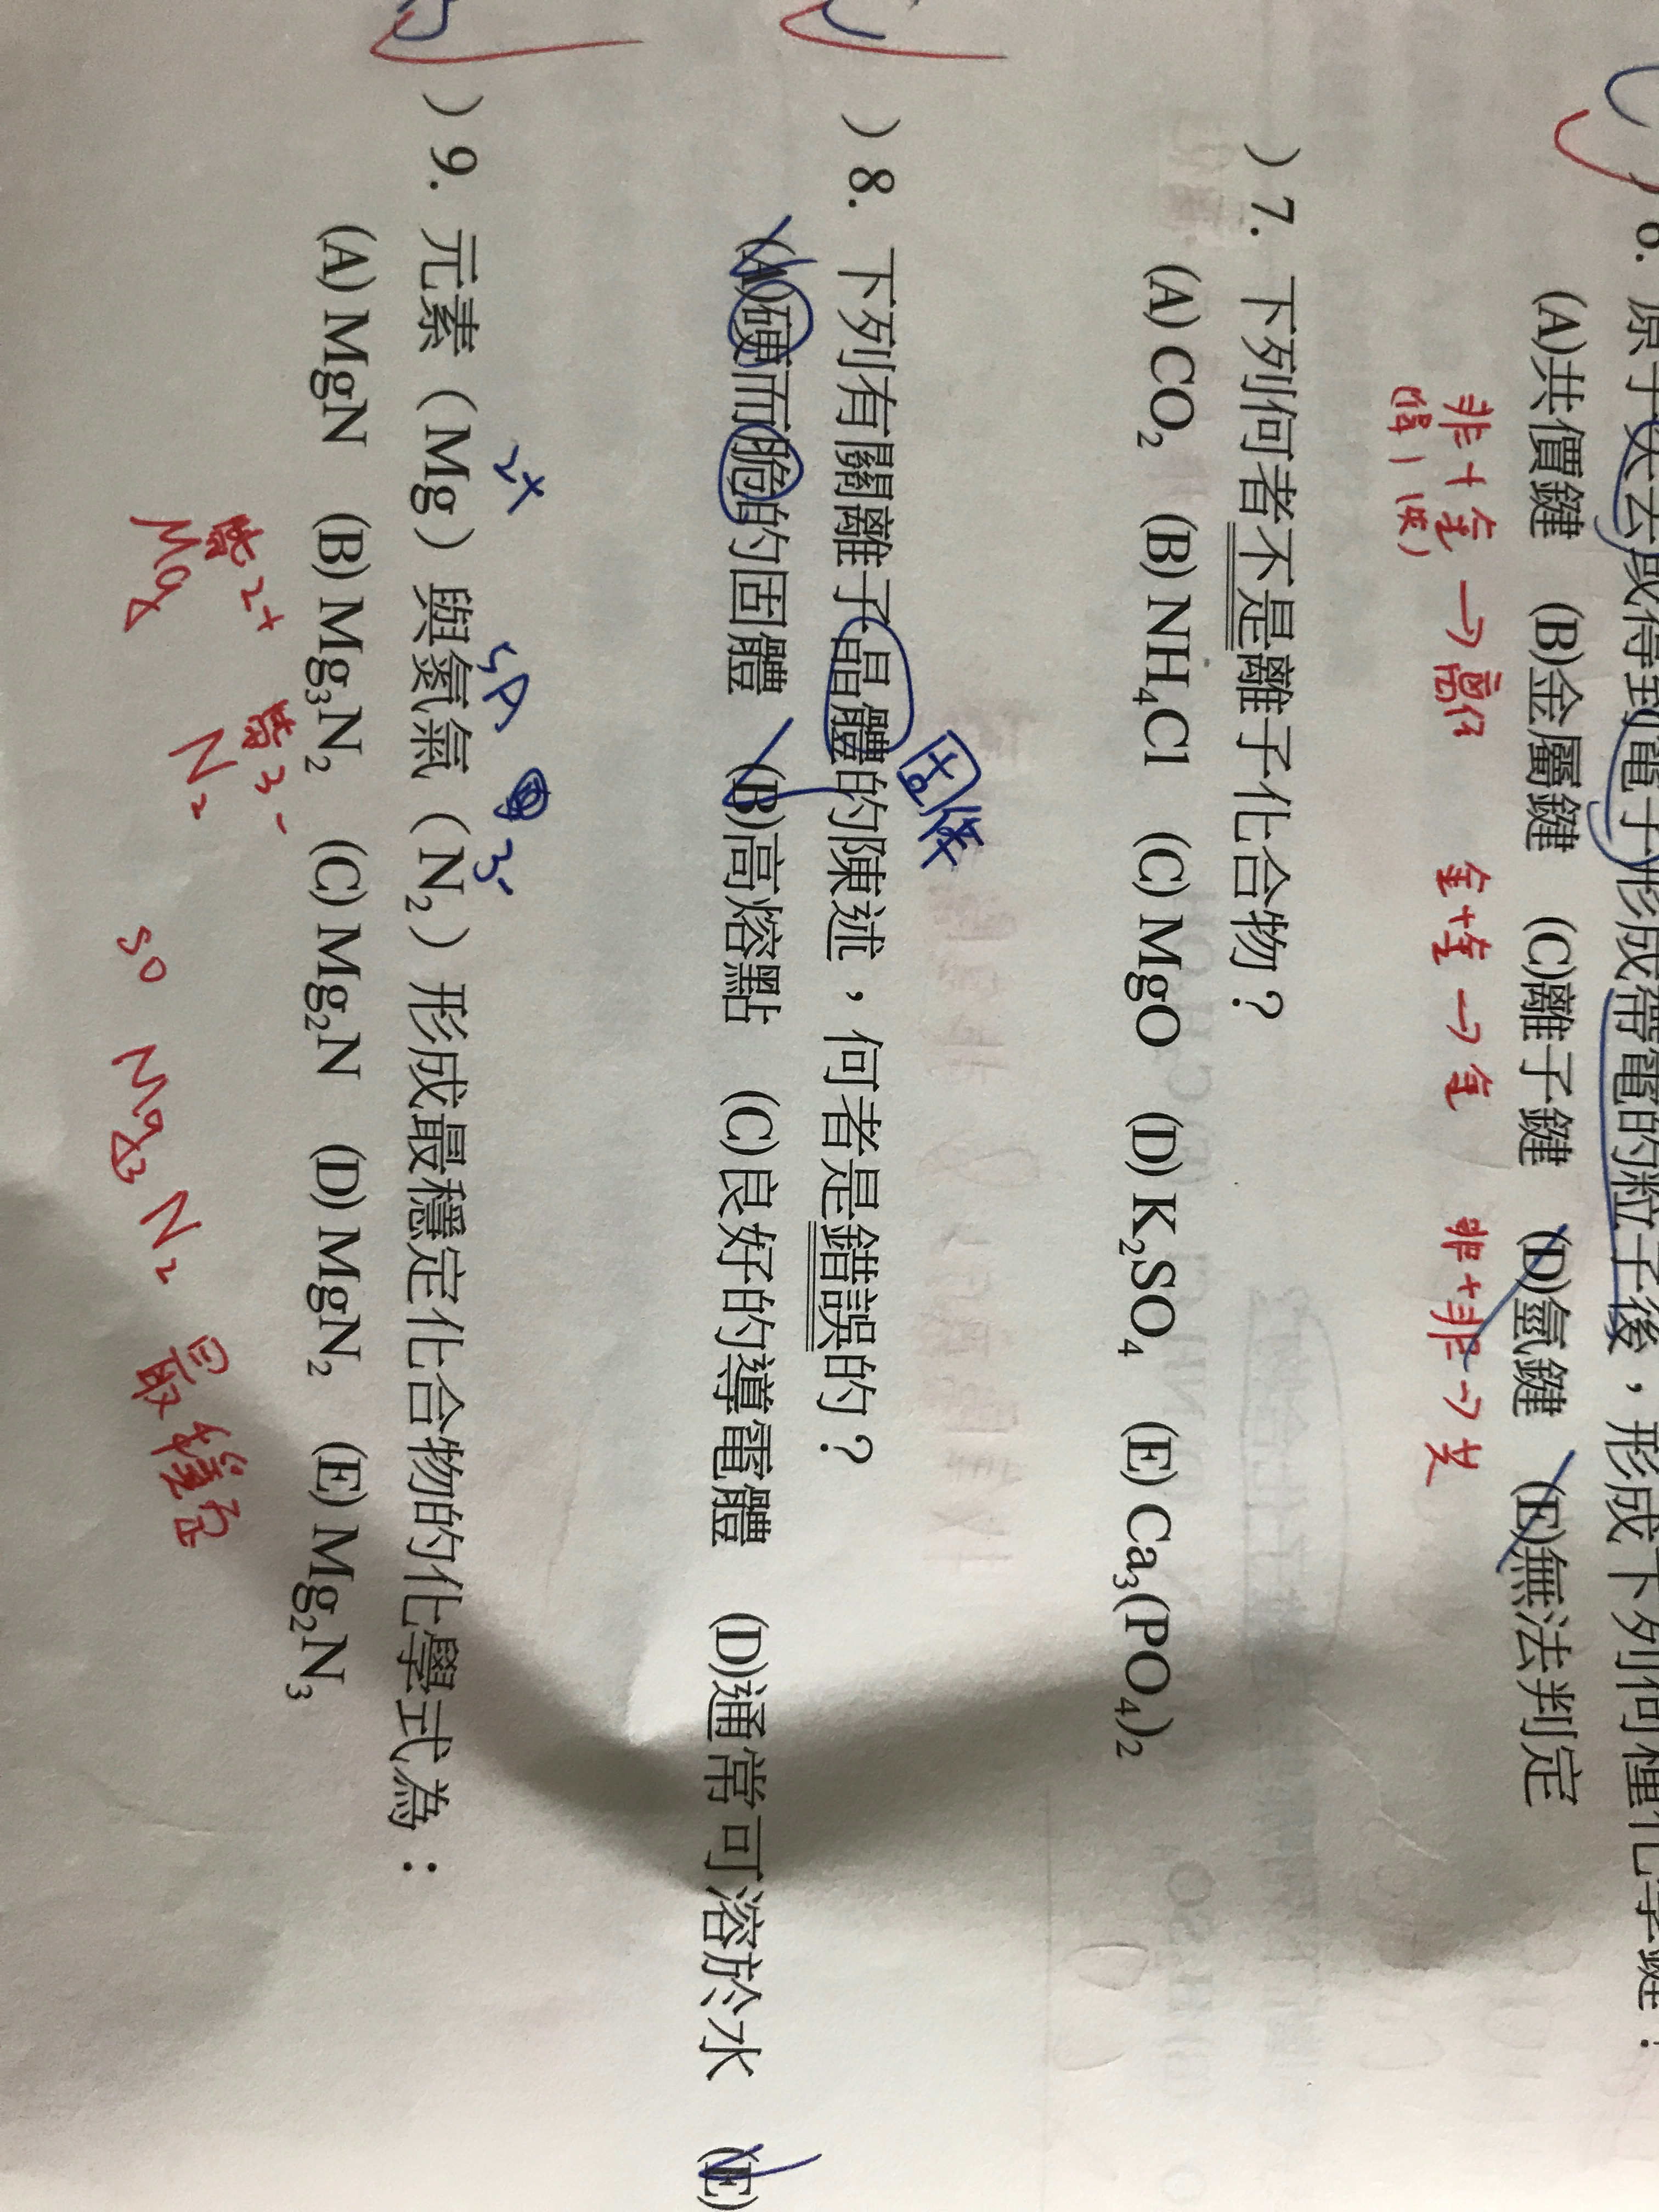 6. 原子失去或得到電子形成帶電的粒子後，形成下列何種化學鍵：
(A)共價鍵 (B)金屬鍵 (C)離子鍵 (D)氫鍵 (E)無法判定
非+金→離 金+金→金 非+非→共
(得) (失)
)7. 下列何者不是離子化合物？
(A) CO₂ (B) NH₄Cl (C) MgO (D) K₂SO₄ (E) Ca₃(PO₄)₂
固体
)8. 下列有關離子晶體的陳述，何者是錯誤的？
(A)硬而脆的固體 (B)高熔點 (C)良好的導電體 (D)通常可溶於水 (E)
2+ 5A 3-
)9. 元素（Mg）與氮氣（N₂）形成最穩定化合物的化學式為：
(A) MgN (B) Mg₃N₂ (C) Mg₂N (D) MgN₂ (E) Mg₂N₃
帶2+ 帶3-
Mg N₂ so Mg₃N₂ 最穩定